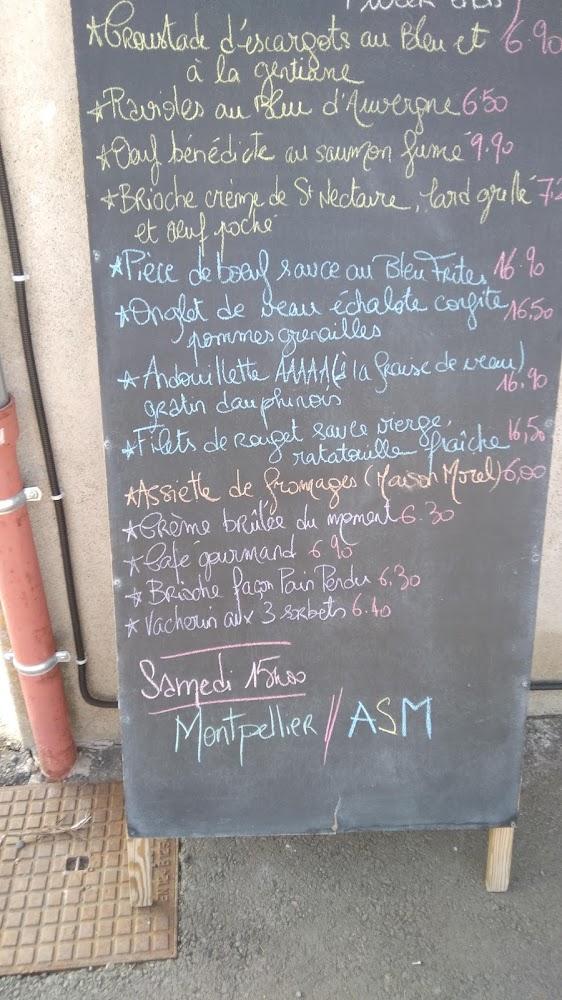 *Croustade d'escargots au Bleu et 6.90
à la gentiane
*Ravioles au Bleu d'Auvergne 6.50
*Oeuf bénédicte au saumon fumé 9.90
*Brioche crème de St Nectaire, lard grillé 7.2
et oeuf poché
*Pièce de boeuf sauce au Bleu Frites 16.90
*Onglet de veau échalote confite 16.50
pommes grenailles
*Andouillette AAAAA (à la fraise de veau)
gratin dauphinois 16.90
*Filets de rouget sauce vierge, 16,50
ratatouille fraîche
*Assiette de fromages (Maison Morel) 6,00
*Crème brûlée du moment 6.30
*Café gourmand 6.90
*Brioche façon Pain Perdu 6.30
*Vacherin aux 3 sorbets 6.40
Samedi 15h00
Montpellier // ASM